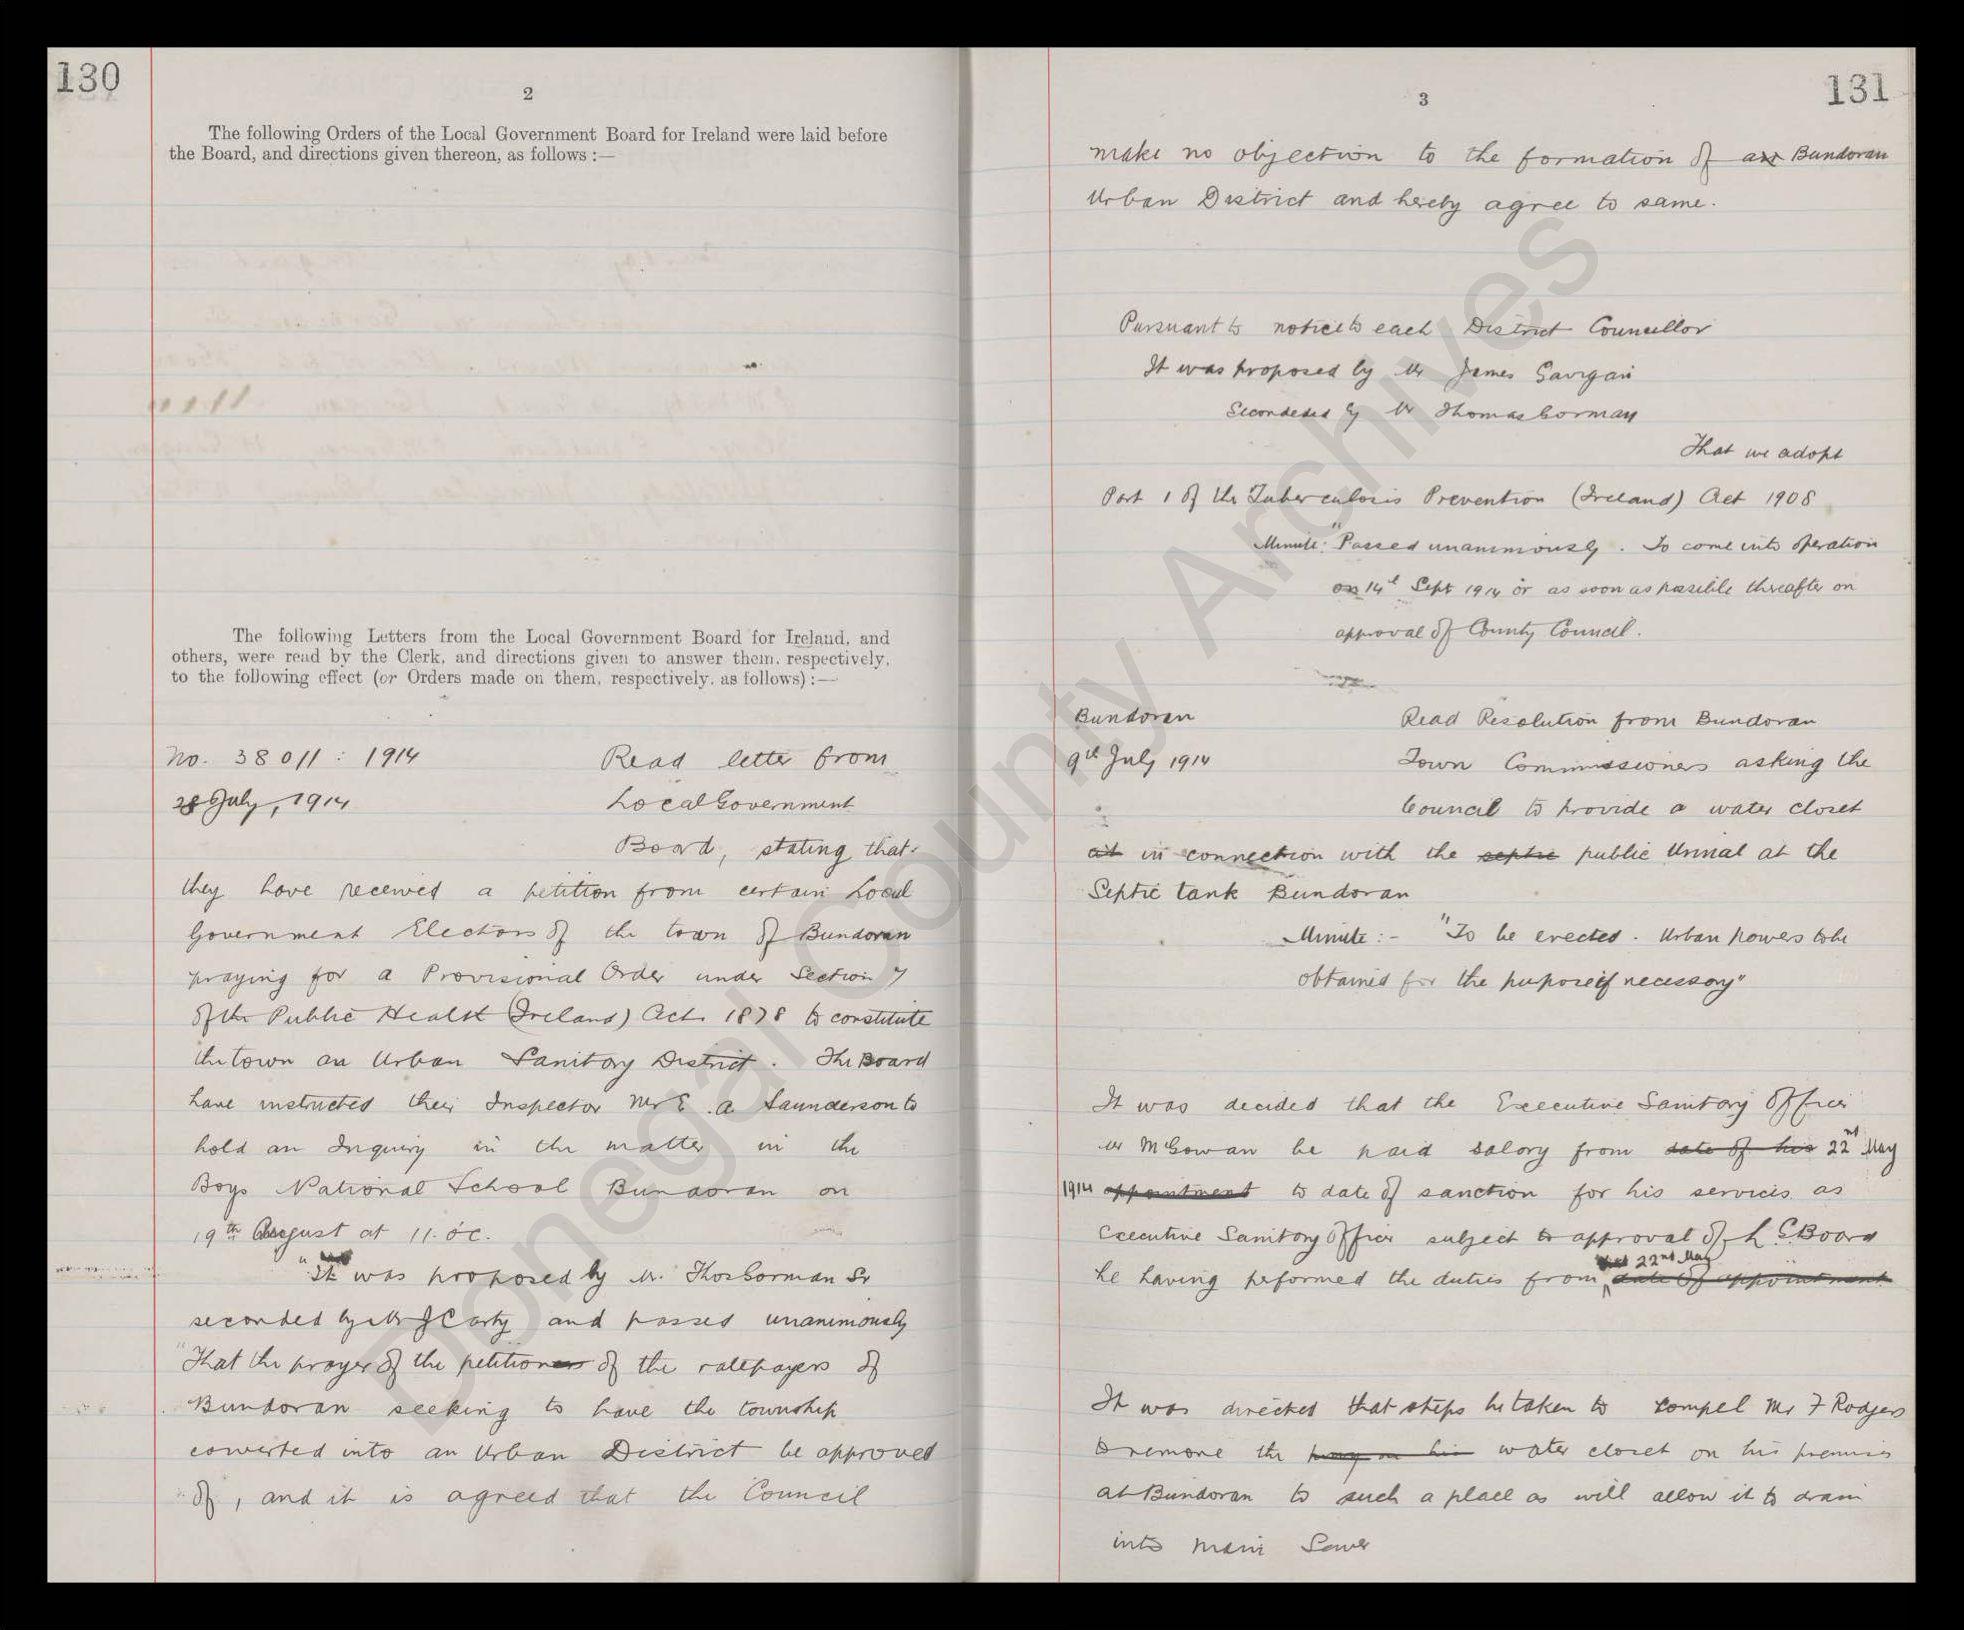 130
2
The following Orders of the Local Government Board for Ireland were laid before
the Board, and directions given thereon, as follows :—
The following Letters from the Local Government Board for Ireland, and
others, were read by the Clerk, and directions given to answer them, respectively,
to the following effect (or Orders made on them, respectively, as follows) :—
No. 38011 : 1914 Read letter from
28 July, 1914 Local Government
Board, stating that
they have received a petition from certain Local
Government Electors of the town of Bundoran
praying for a Provisional Order under Section 7
of the Public Health (Ireland) Act 1878 to constitute
the town an Urban Sanitary District. The Board
have instructed their Inspector Mr E. A Saunderson to
hold an Inquiry in the matter in the
Boys National School Bundoran on
19th August at 11. o'c.
"It was proposed by Mr. Thos Gorman Sr
seconded by Mr J Carty and passed unanimously
"That the prayer of the petitioners of the ratepayers of
Bundoran seeking to have the township
converted into an Urban District be approved
of, and it is agreed that the Council
131
3
make no objection to the formation of an Bundoran
Urban District and hereby agree to same.
Pursuant to notice to each District Councillor
It was proposed by Mr James Gavigan
Seconded by Mr Thomas Gorman
That we adopt
Part 1 of the Tuberculosis Prevention (Ireland) Act 1908
Minute: "Passed unanimously. To come into operation
on 14th Sept 1914 or as soon as possible thereafter on
approval of County Council.
Bundoran Read Resolution from Bundoran
9th July 1914 Town Commissioners asking the
Council to provide a water closet
at in connection with the septic public Urinal at the
Septic tank Bundoran
Minute :- "To be erected. Urban powers to be
obtained for the purpose if necessary"
It was decided that the Executive Sanitary Officer
Mr McGowan be paid salary from date of his 22nd May
1914 appointment to date of sanction for his services as
Executive Sanitary Officer subject to approval of L G Board
22nd May
he having performed the duties from date of appointment
It was directed that steps be taken to compel Mr F Rodgers
to remove the water closet on his premises
at Bundoran to such a place as will allow it to drain
into main Sewer
Donegal County Archives